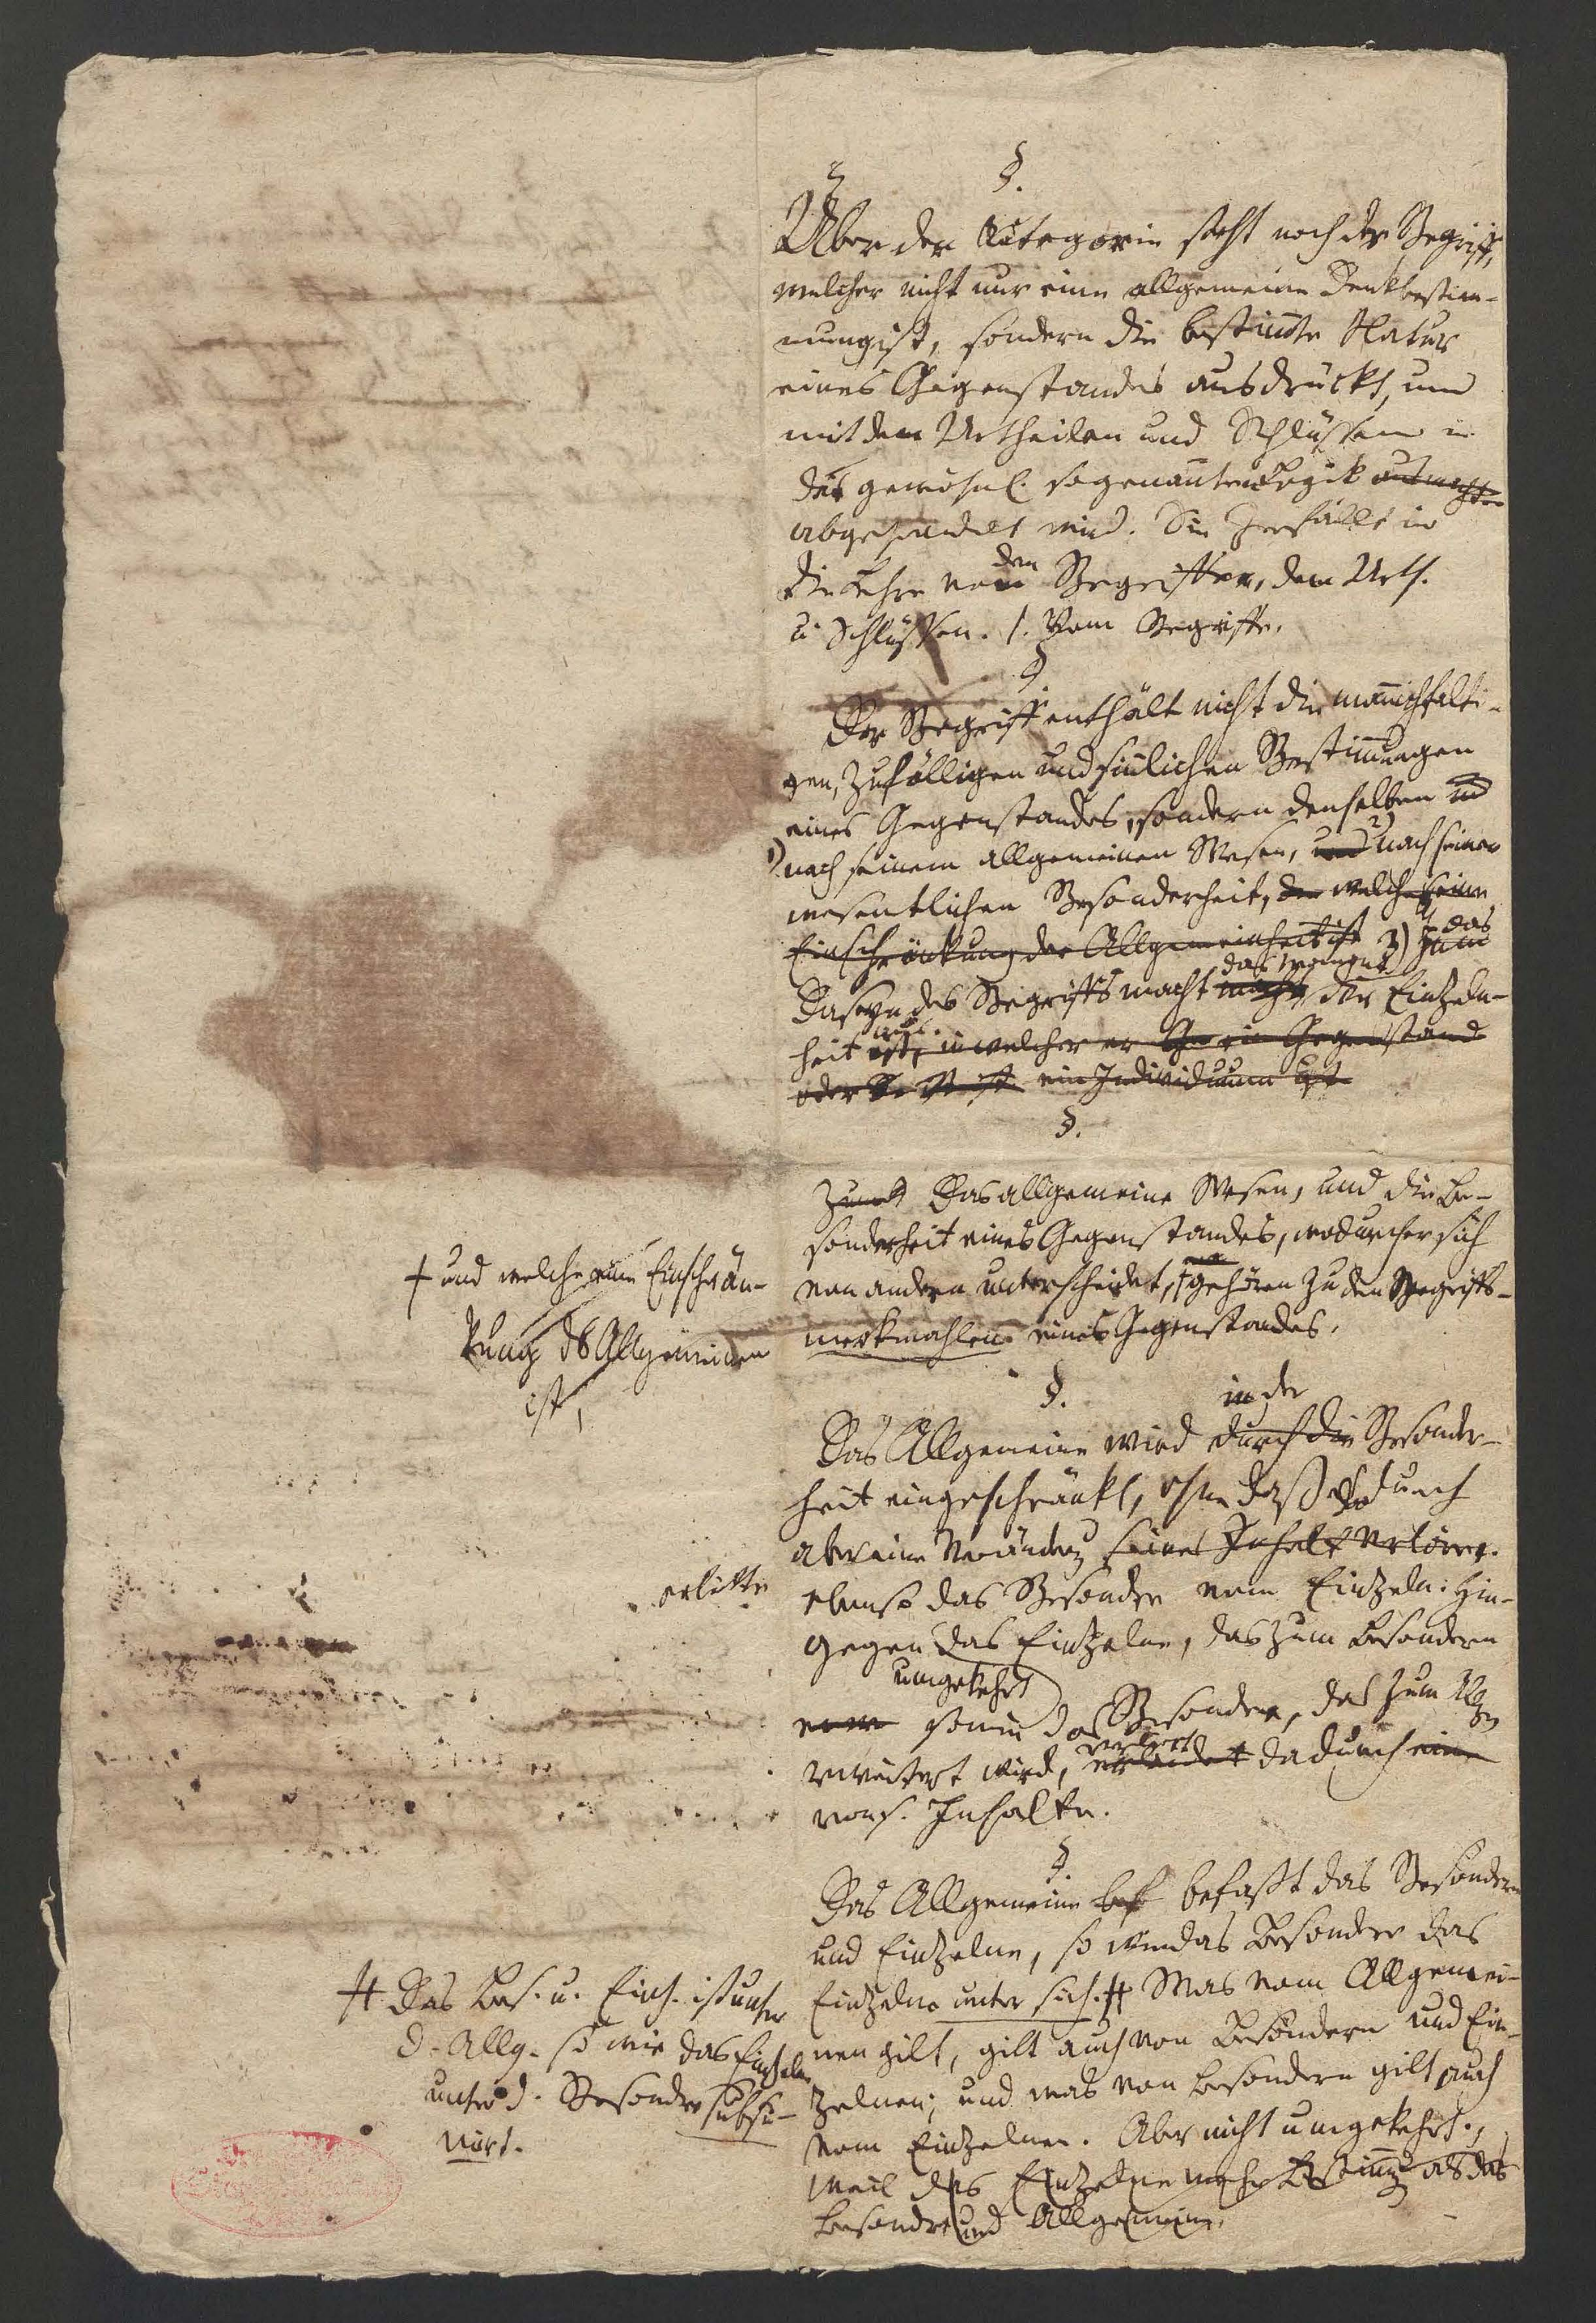 §.
Über der Kategorie steht noch der Begriff,
welcher nicht nur eine allgemeine Denkbestim-
mung ist, sondern die bestim̄te Natur
eines Gegenstandes ausdrückt, und
mit den Urtheilen und Schlüssen in
der gewöhnl. sogenan̄ten Logik ausmacht
abgehandelt wird. Sie zerfällt in
die Lehre von den Begriffen, dem Urth.
u. Schlüssen. 1. Vom Begriffe.
§
Der Begriff enthält nicht die man̄ichfalti-
gen, zufälligen und sin̄lichen Bestim̄ungen
eines Gegenstandes, sondern denselben
1) nach seinem allgemeinen Wesen, und 2) nach seiner
wesentlichen Besonderheit, der welche eine
Einschränkung der Allgemeinheit ist 3) Zum das
Daseyn des Begriffs macht macht das Moment der Einzeln-
heit aus. ist, in welcher er ein Gegenstand
oder ein Individuum ist
§.
Zunächst Das allgemeine Wesen, und die Be-
sonderheit eines Gegenstandes, wodurch er sich
von andern unterscheidet, † gehören zu den Begriffs-
merkmahlen eines Gegenstandes.
† und welche eine Einschrän-
kung des Allgemeinen
ist,
§.
Das Allgemeine wird durch die in der Besonder-
heit eingeschränkt, ohne daß es dadurch
aber eine Verändrg seines Inhalt verlöre.
erlitte
ebenso das Besondre vom Einzeln: Hin-
gegen das Einzelne, das zum Besondern
umgekehrt
so wie das Besondre, das zum Allg
erweitert wird, erleidet verliert dadurch eine
von s. Inhalte.
§.
Das Allgemeine bef befaßt das Besondere
und Einzelne, so wie das Besondre das
Einzelne unter sich. # Was vom Allgemei-
nen gilt, gilt auch von Besondern und Ein-
zelnen; und was von Besondern gilt auch
vom Einzelnen. Aber nicht umgekehrt.,
weil das Einzelne mehr Bestim̄g als das
Besondre und Allgemeine.
# Das Bes. u. Einz. ist unter
d. Allg. so wie das Einzelne
unter d. Besondre subsu-
mirt.